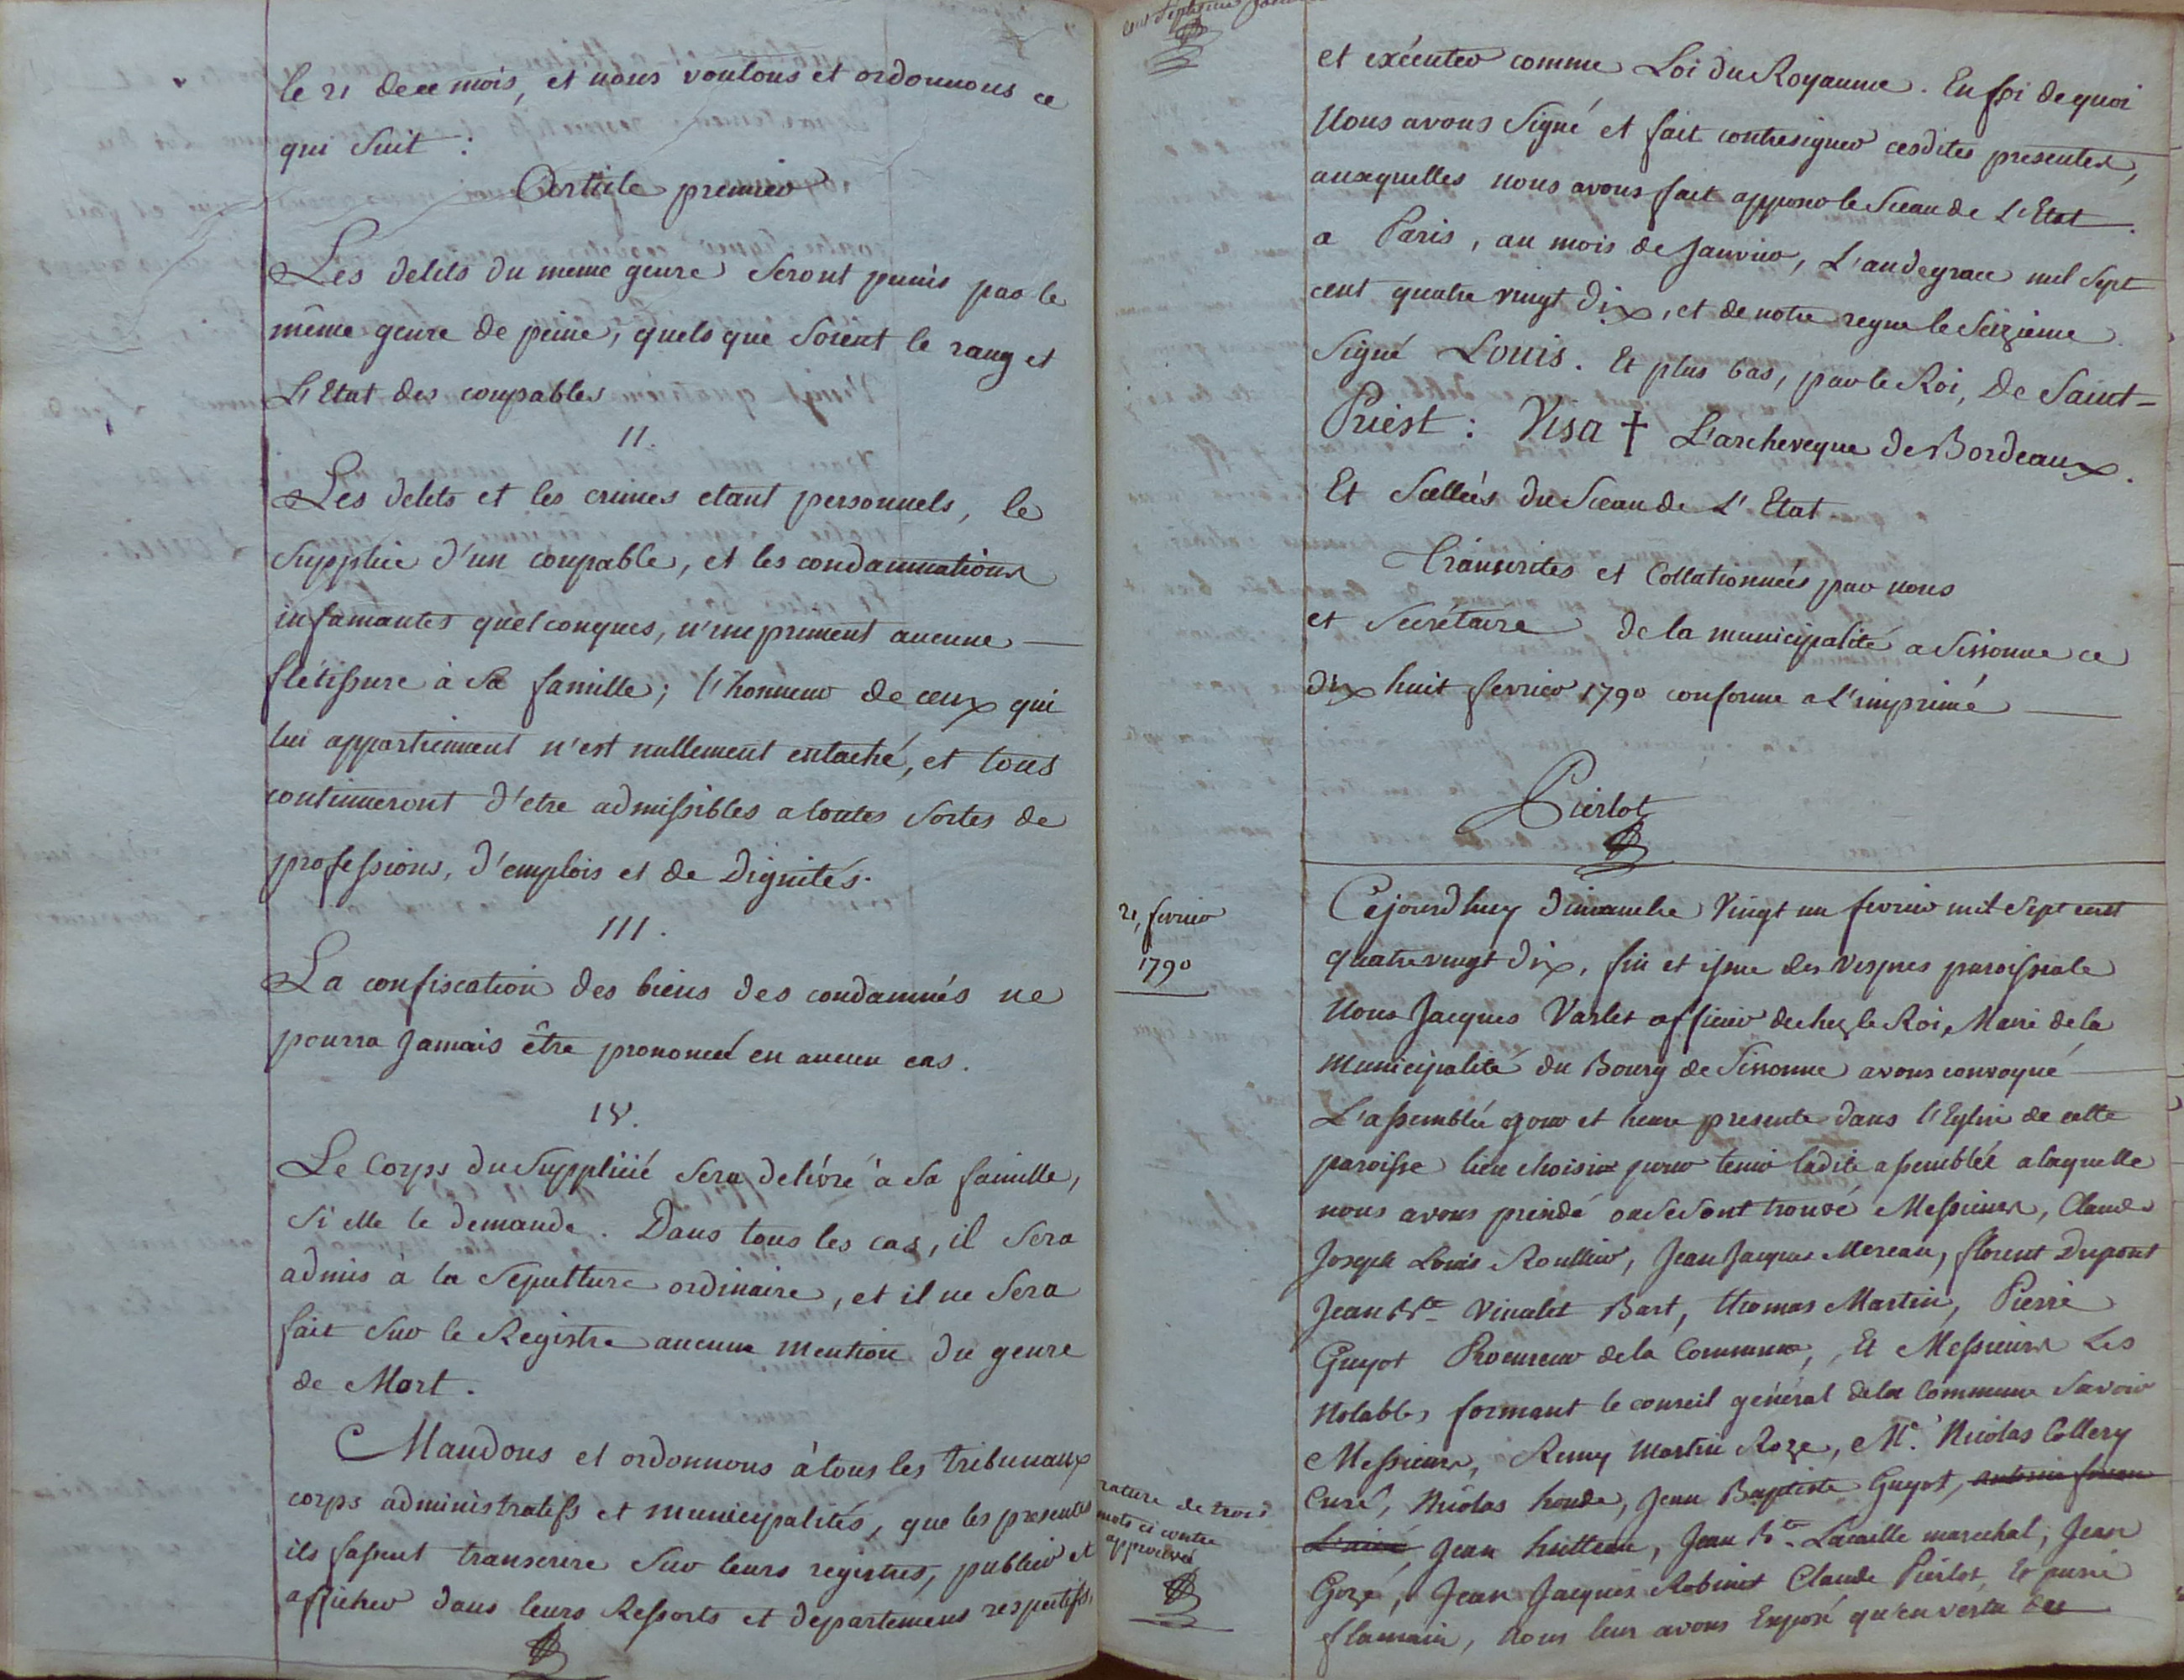 le 21 de ce mois, et nous voulons et ordonnons ce
qui suit :
Article premier
Les delits du meme genre seront punis par le
même genre de peine, quels que soient le rang et
L'Etat des coupables
II.
Les delits et les crimes etant personnels, le
supplice d'un coupable, et les condamnations
infamantes quelconques, n'impriment aucune
flétissure à sa famille ; l'honneur de ceux qui
lui appartiennent n'est nullement entaché, et tous
continueront d'etre admissibles a toutes sortes de
professions, d'emplois et de Dignités.
III.
La confiscation des biens des condamnés ne
pourra jamais être prononcé en aucun cas.
IV.
Le Corps du Supplicié sera délivré à sa famille,
si elle le demande. Dans tous les cas, il sera
admis à la Sepulture ordinaire, et il ne sera
fait sur le Registre aucune mention du genre
de Mort.
Mandons et ordonnons à tous les tribunaux
corps administratifs et municipalités, que les presentes
ils fassent transcrire sur leurs registres, publier et
afficher dans leurs Ressorts et departemens respectifs,
et exécuter comme Loi du Royaume. En foi de quoi
Nous avons signé et fait contresigner cesdites presentes,
auxquelles nous avons fait apposer le Sceau de L'Etat.
a Paris, au mois de Janvier, L'an de grace mil sept
cent quatre vingt dix, et de notre regne le Seizieme.
Signé Louis. Et plus bas, par le Roi, De Saint-
Priest : Visa † L'archeveque de Bordeaux.
Et Scellées du Sceau de L'Etat
Transcrites et Collationnées par nous
et Secrétaire de la municipalité a Sissonne ce
dix huit fevrier 1790 conforme a L'imprimé
Pierlot
21, fevrier
1790
Cejourd'huy dimanche Vingt un fevrier mil sept cent
quatre vingt dix, fin et issue des Vespres paroissiale
Nous Jacques Varlet officier de chez le Roi, Maire de la
Municipalité du Bourg de Sissonne avons convoqué
L'assemblée a jour et heure presente dans l'Eglise de cette
paroisse lieu choisie pour tenir ladite assemblée a laquelle
nous avons présidé ou se sont trouvé Messieurs, Claude
Joseph Louis Roullier, Jean Jacques Mereau, florent Dupont
Jean Bte Vinalet Bart, thomas Martin, Pierre
Guyot Procureur de la Commune, Et Messieurs Les
Notables formant le conseil général de la Commune Savoir
Messieurs, Remy Martin Roze, Me. Nicolas Collery
Curé, Nicolas houde, Jean Baptiste Guyot,
L'ainé, Jean hutteau, Jean Bte Lacaille marechal, Jean
Gozé, Jean Jacques Robinet Claude Pierlot,
flamain, Nous leur avons Exposé qu'en vertu des
rature de trois
mots ci contre
approuvé